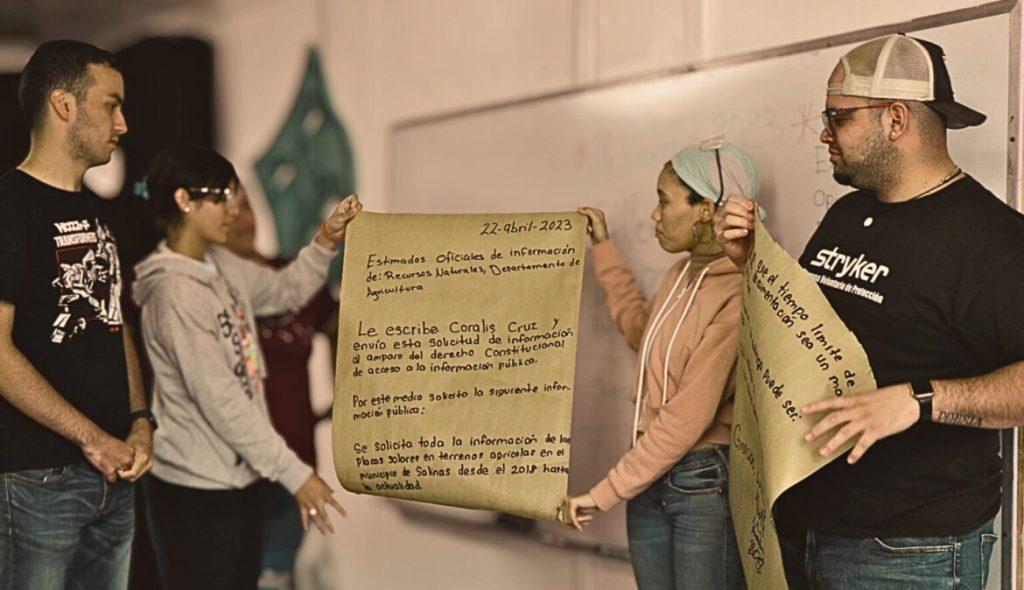 22-abril-2023
Estimados Oficiales de información
de: Recursos Naturales, Departamento de
Agricultura
Le escribe Coralis Cruz y
envío esta solicitud de información
al amparo del derecho Constitucional
de acceso a la información pública.
Por este medio solicito la siguiente infor-
mación pública:
Se solicita toda la información de las
placas solares en terrenos agrícolas en el
municipio de Salinas desde el 2018 hasta
la actualidad.
que el tiempo límite de
sea un
puede ser:
stryker
Voluntario de Protección
TRANSFORMERS
POESÍA
2023